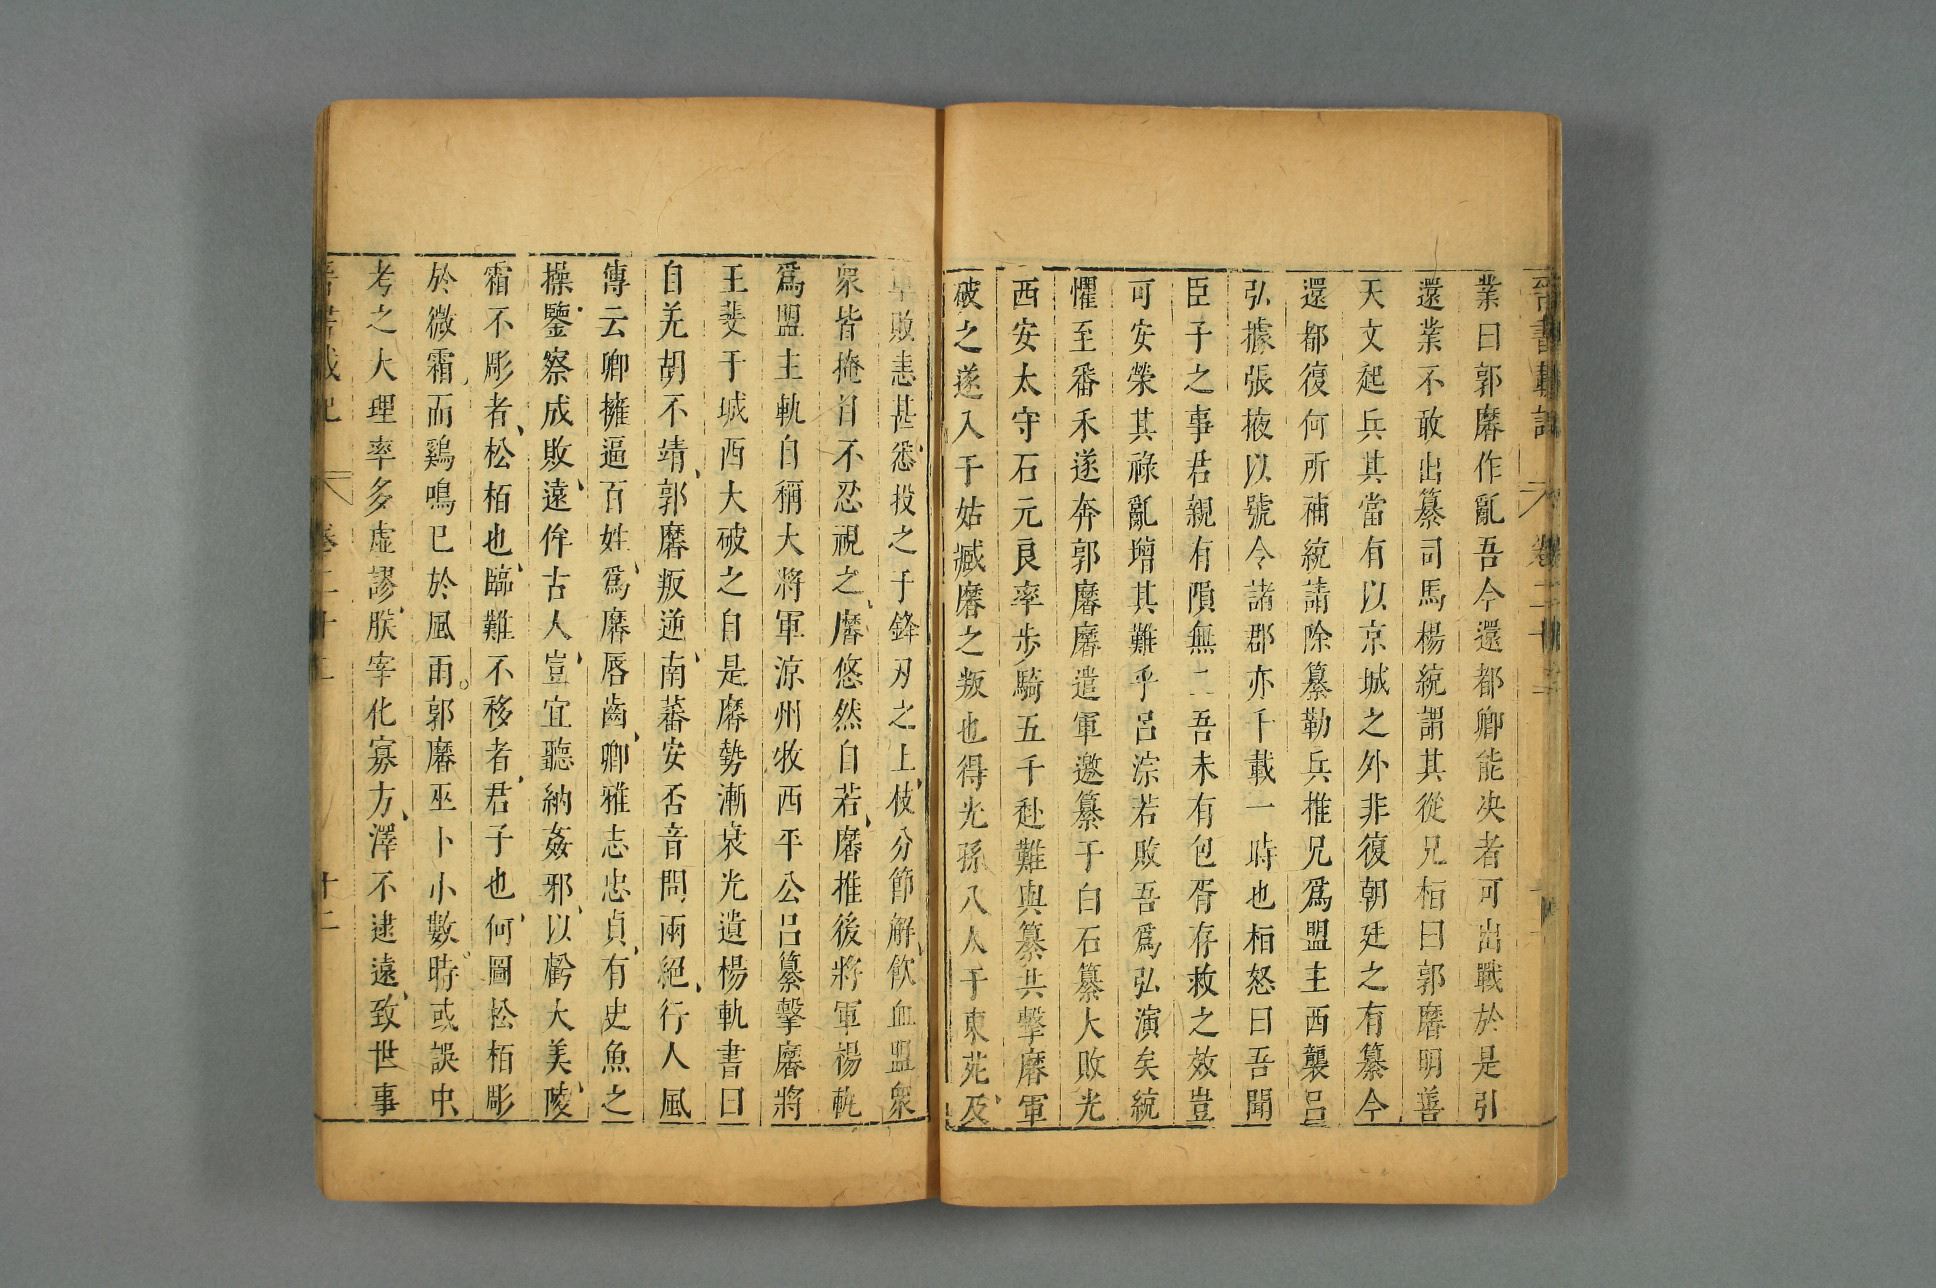 晉書載記　卷二十二
業曰郭黁作亂吾今還都卿能决者可出戰於是引
還業不敢出纂司馬楊統謂其從兄桓曰郭黁明善
天文起兵其當有以京城之外非復朝廷之有纂今
還都復何所補統請除纂勒兵推兄爲盟主西襲呂
弘據張掖以號令諸郡亦千載一時也桓怒曰吾聞
臣子之事君親有隕無二吾未有包胥存救之效豈
可安榮其祿亂增其難乎呂宗若敗吾爲弘演矣統
懼至番禾遂奔郭黁黁遣軍邀纂于白石纂大敗光
西安太守石元良率步騎五千赴難與纂共擊黁軍
破之遂入于姑臧黁之叛也得光孫八人于東苑及
軍敗恚甚悉投之于鋒刃之上枝分節解飲血盟衆
衆皆掩目不忍視之黁悠然自若黁推後將軍楊軌
爲盟主軌自稱大將軍涼州牧西平公呂纂擊黁將
王斐于城西大破之自是黁勢漸衰光遺楊軌書曰
自羌胡不靖郭黁叛逆南蕃安否音問兩絕行人風
傳云卿擁逼百姓爲黁唇齒卿雅志忠貞有史魚之
操鑒察成敗遠侔古人豈宜聽納姦邪以虧大美陵
霜不彫者松栢也臨難不移者君子也何圖松栢彫
於微霜而鷄鳴已於風雨郭黁巫卜小數時或誤中
考之大理率多虛謬朕宰化寡方澤不逮遠致世事
晉書載記　卷二十二　十二